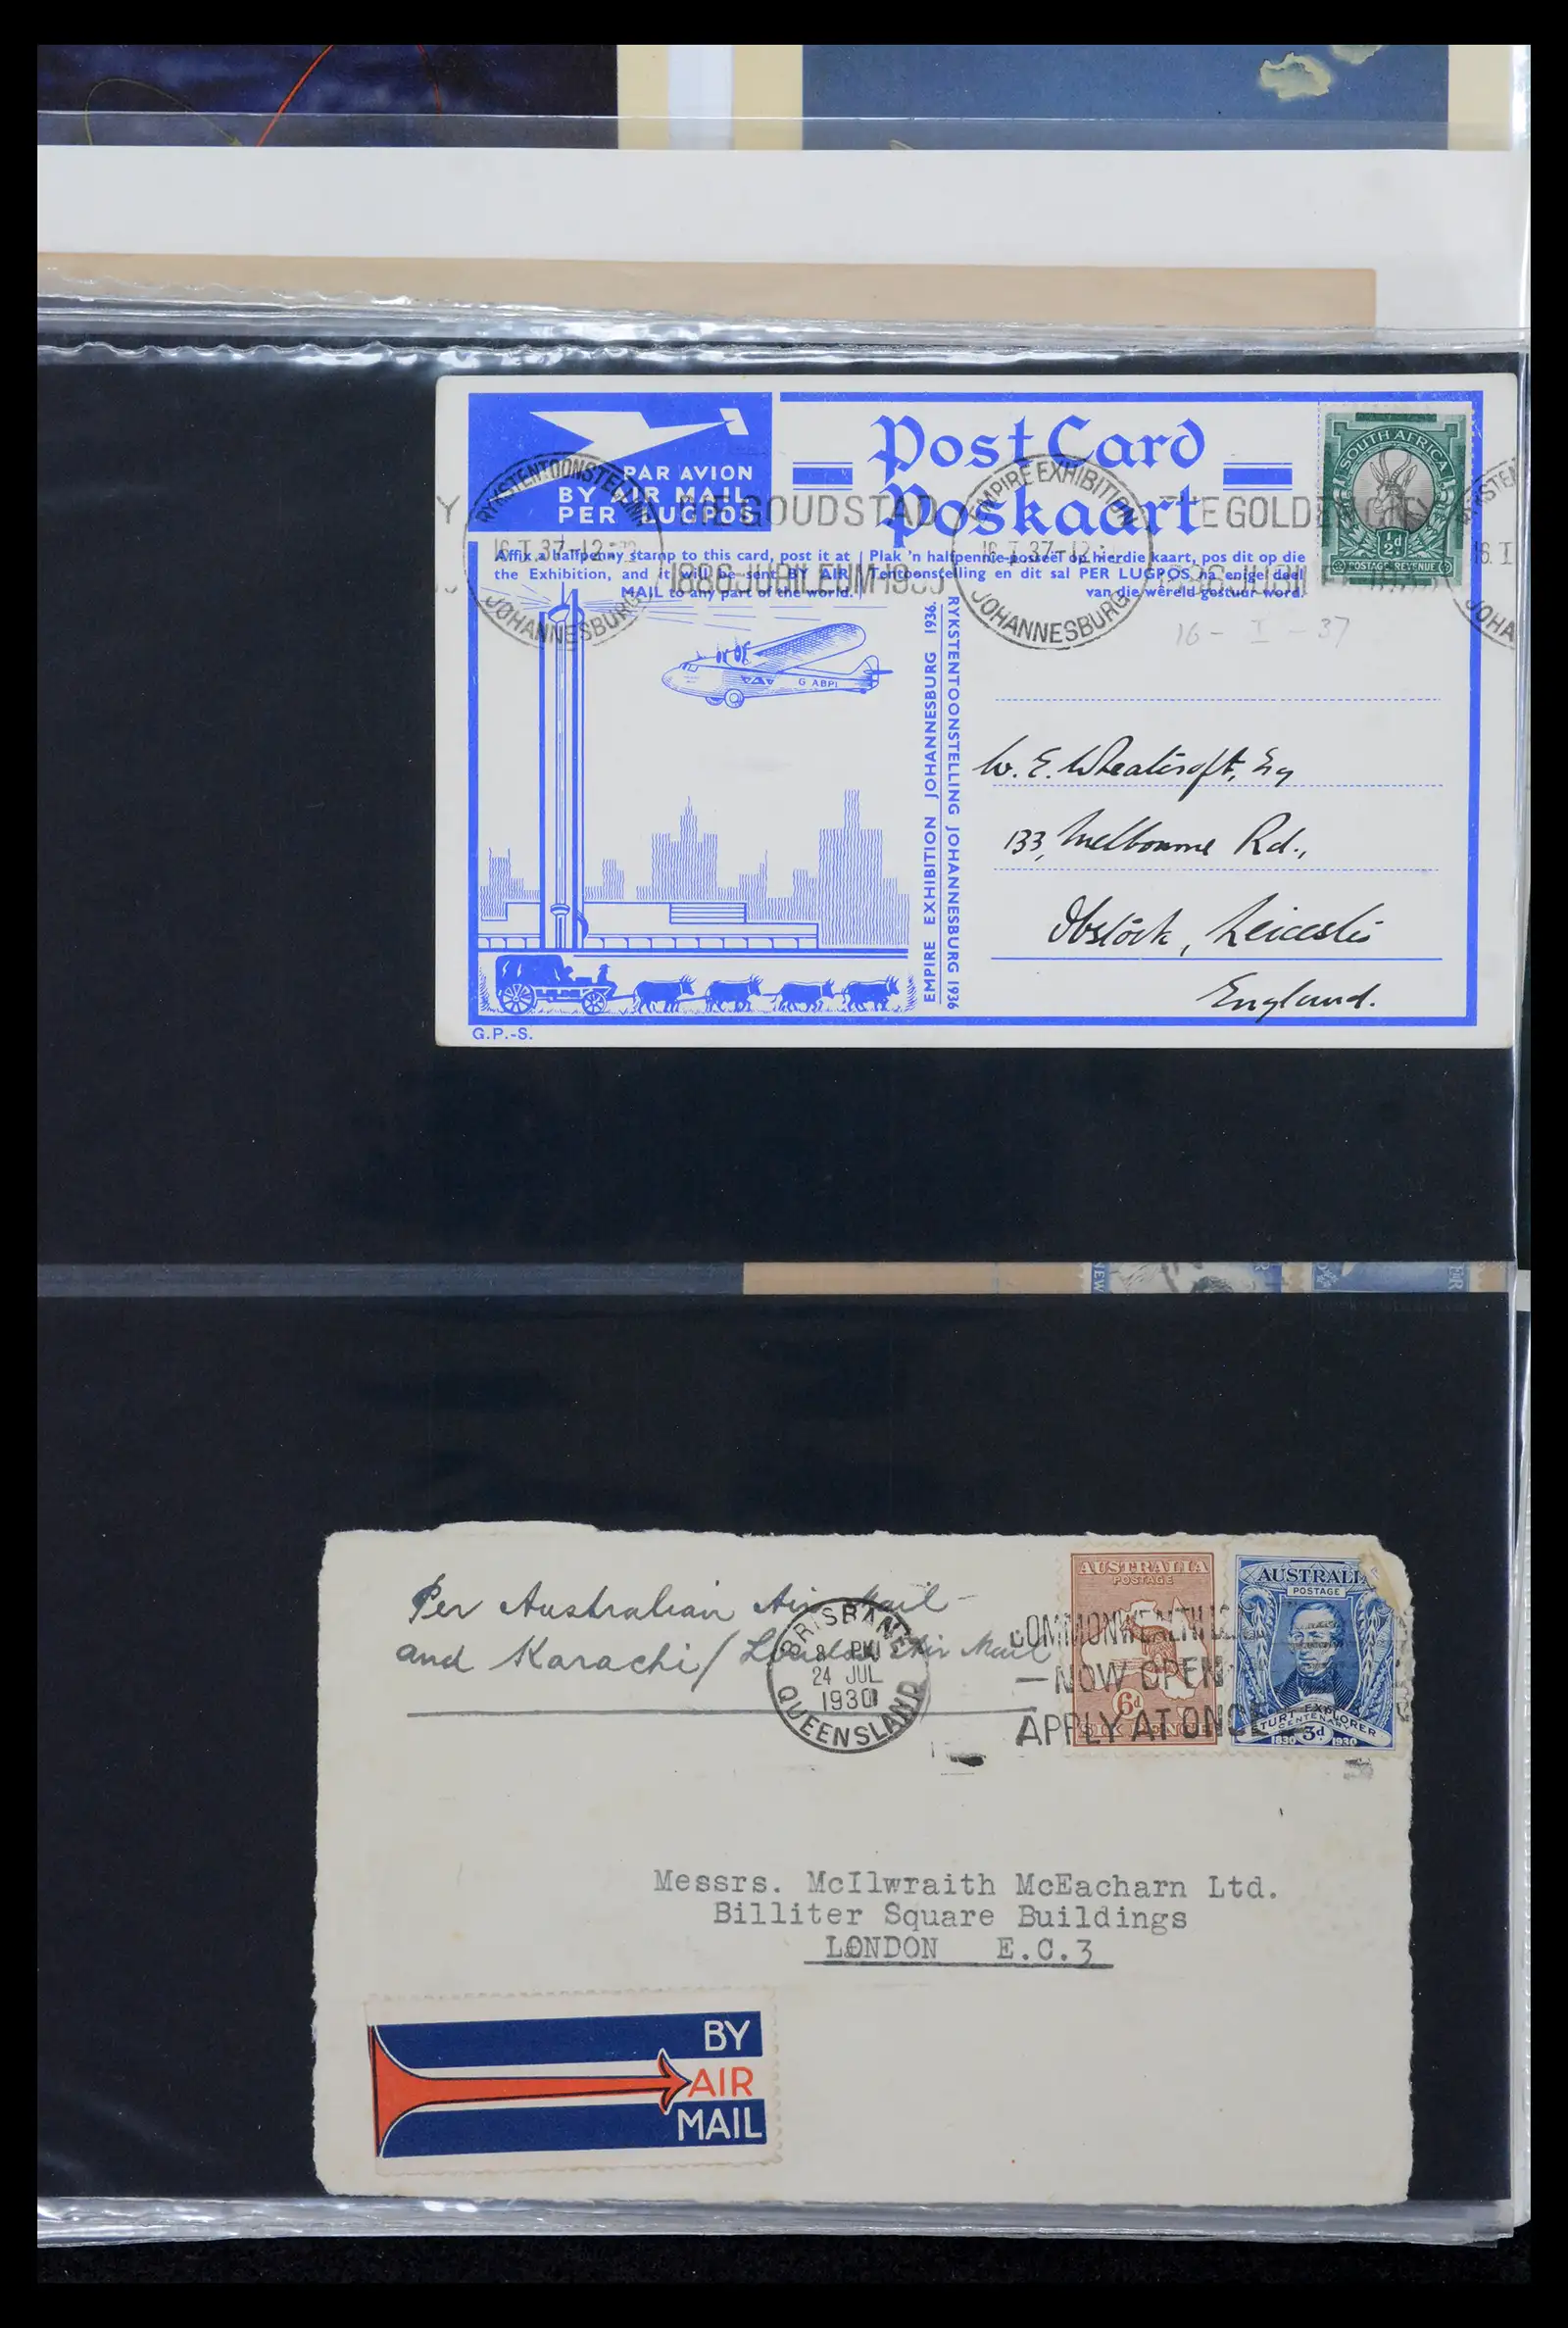 PAR AVION
BY AIR MAIL
PER LUGPOS
Post Card
Poskaart
SOUTH AFRICA
½d
POSTAGE REVENUE
RYKSTENTOONSTELLING
16 I 37-12
JOHANNESBURG
DIE GOUDSTAD
1886 JUBILEUM 1936
EMPIRE EXHIBITION
16 I 37-12
JOHANNESBURG
THE GOLDEN CITY
Affix a halfpenny stamp to this card, post it at
the Exhibition, and it will be sent BY AIR
MAIL to any part of the world.
Plak 'n halfpennie-posseël op hierdie kaart, pos dit op die
Tentoonstelling en dit sal PER LUGPOS na enige deel
van die wêreld gestuur word.
16 - I - 37
G ABPI
EMPIRE EXHIBITION JOHANNESBURG 1936.
RYKSTENTOONSTELLING JOHANNESBURG 1936
W. E. Wheatcroft, Esq
133, Melbourne Rd.,
Ibstock, Leicester
England.
G.P.-S.
NEW
Per Australian Air Mail -
and Karachi/London Air Mail
BRISBANE
8 PM
24 JUL
1930
QUEENSLAND
COMMONWEALTH
—NOW OPEN
APPLY AT ONCE
AUSTRALIA
POSTAGE
6d
SIX PENCE
AUSTRALIA
POSTAGE
STURT EXPLORER
CENTENARY
1830 3d 1930
Messrs. McIlwraith McEacharn Ltd.
Billiter Square Buildings
LONDON E.C.3
BY
AIR
MAIL